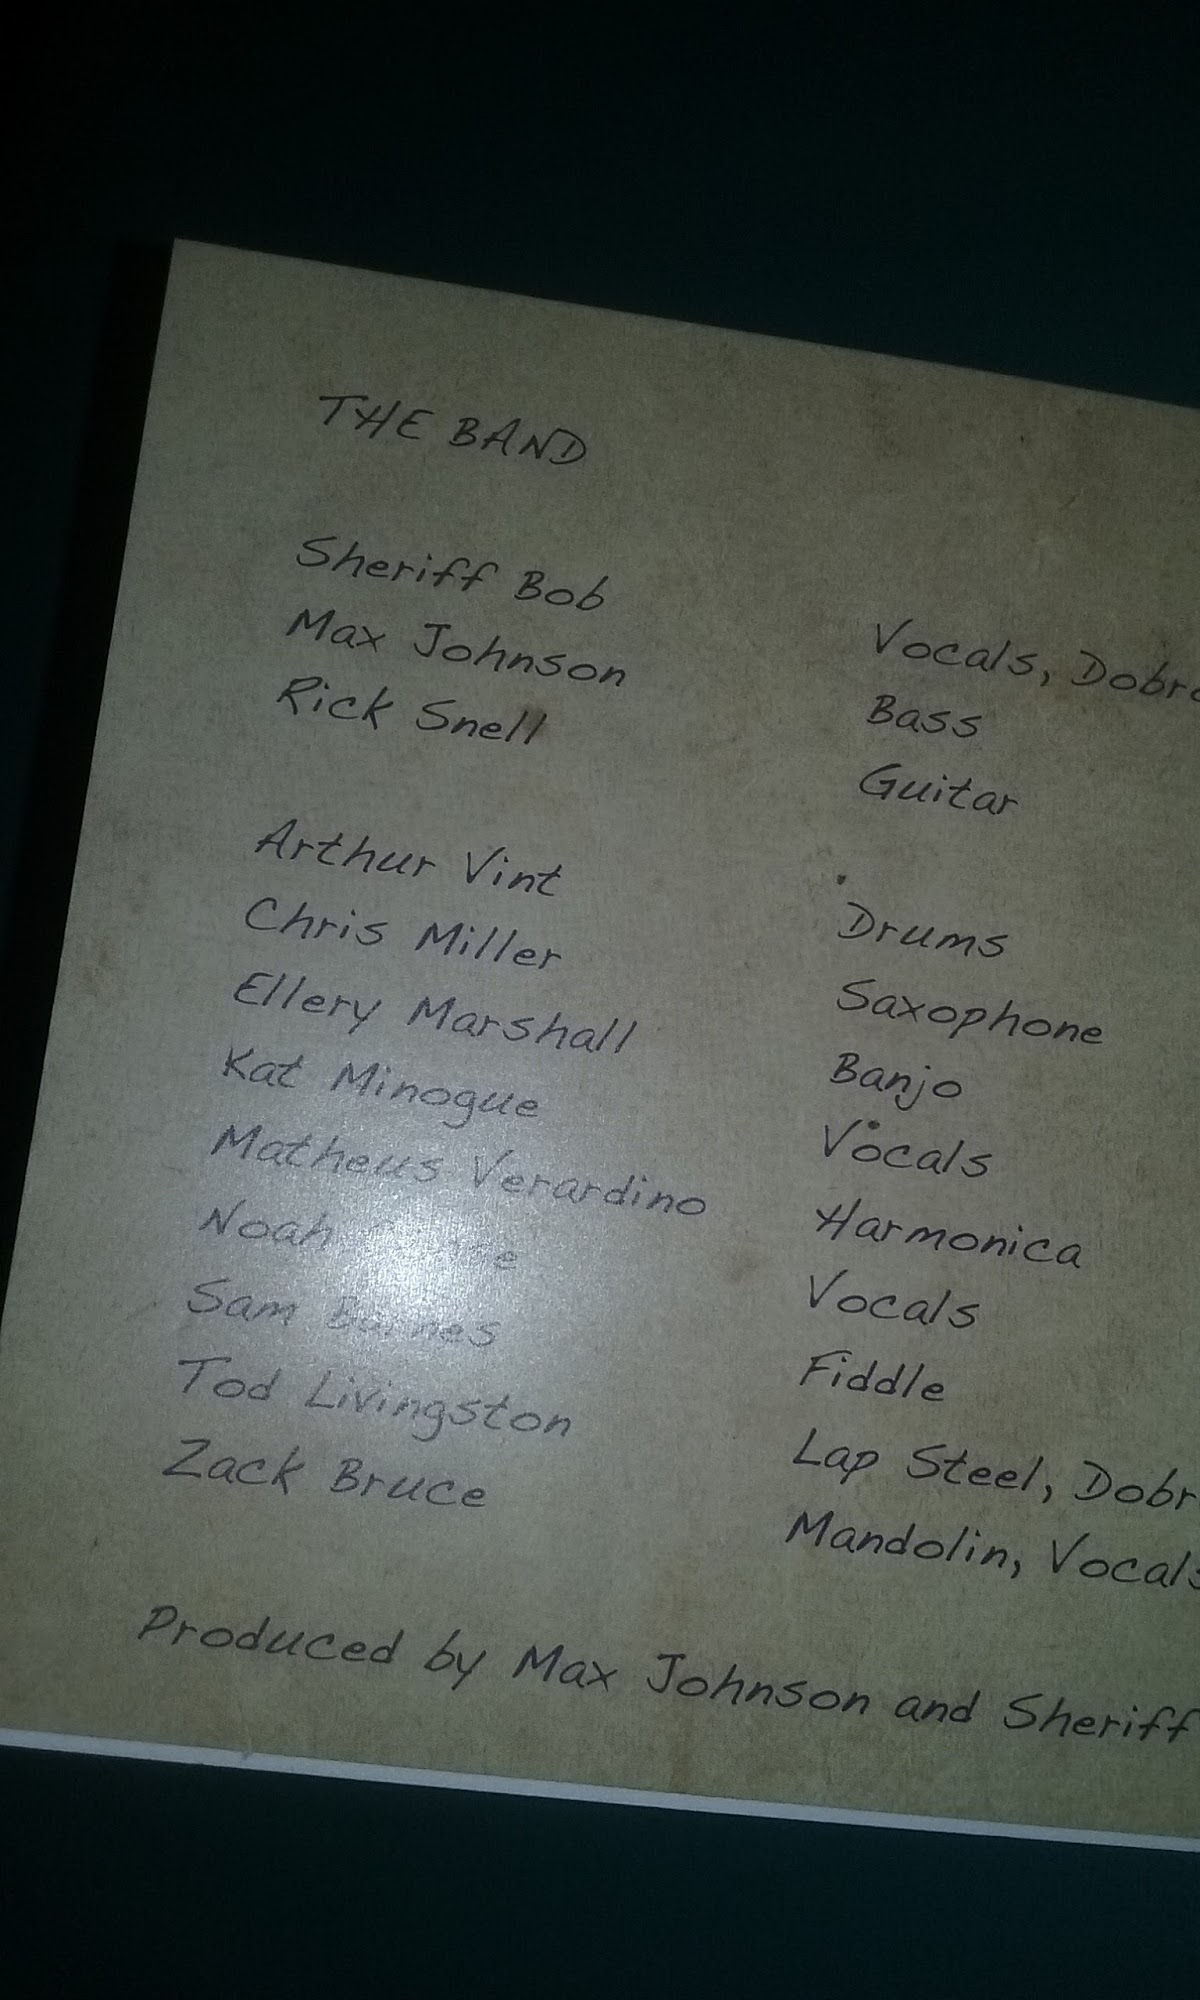 THE BAND
Sheriff Bob Vocals, Dobro
Max Johnson Bass
Rick Snell Guitar
Arthur Vint Drums
Chris Miller Saxophone
Ellery Marshall Banjo
Kat Minogue Vocals
Matheus Verardino Harmonica
Noah Vocals
Sam Barnes Fiddle
Tod Livingston Lap Steel, Dobr
Zack Bruce Mandolin, Vocals
Produced by Max Johnson and Sheriff